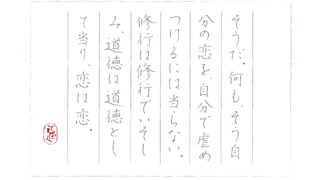 そうだ。何も、そう自
分の恋を、自分で虐め
つけるには当らない。
修行は修行でいそし
み、道徳は道徳とし
て当り、恋は恋。